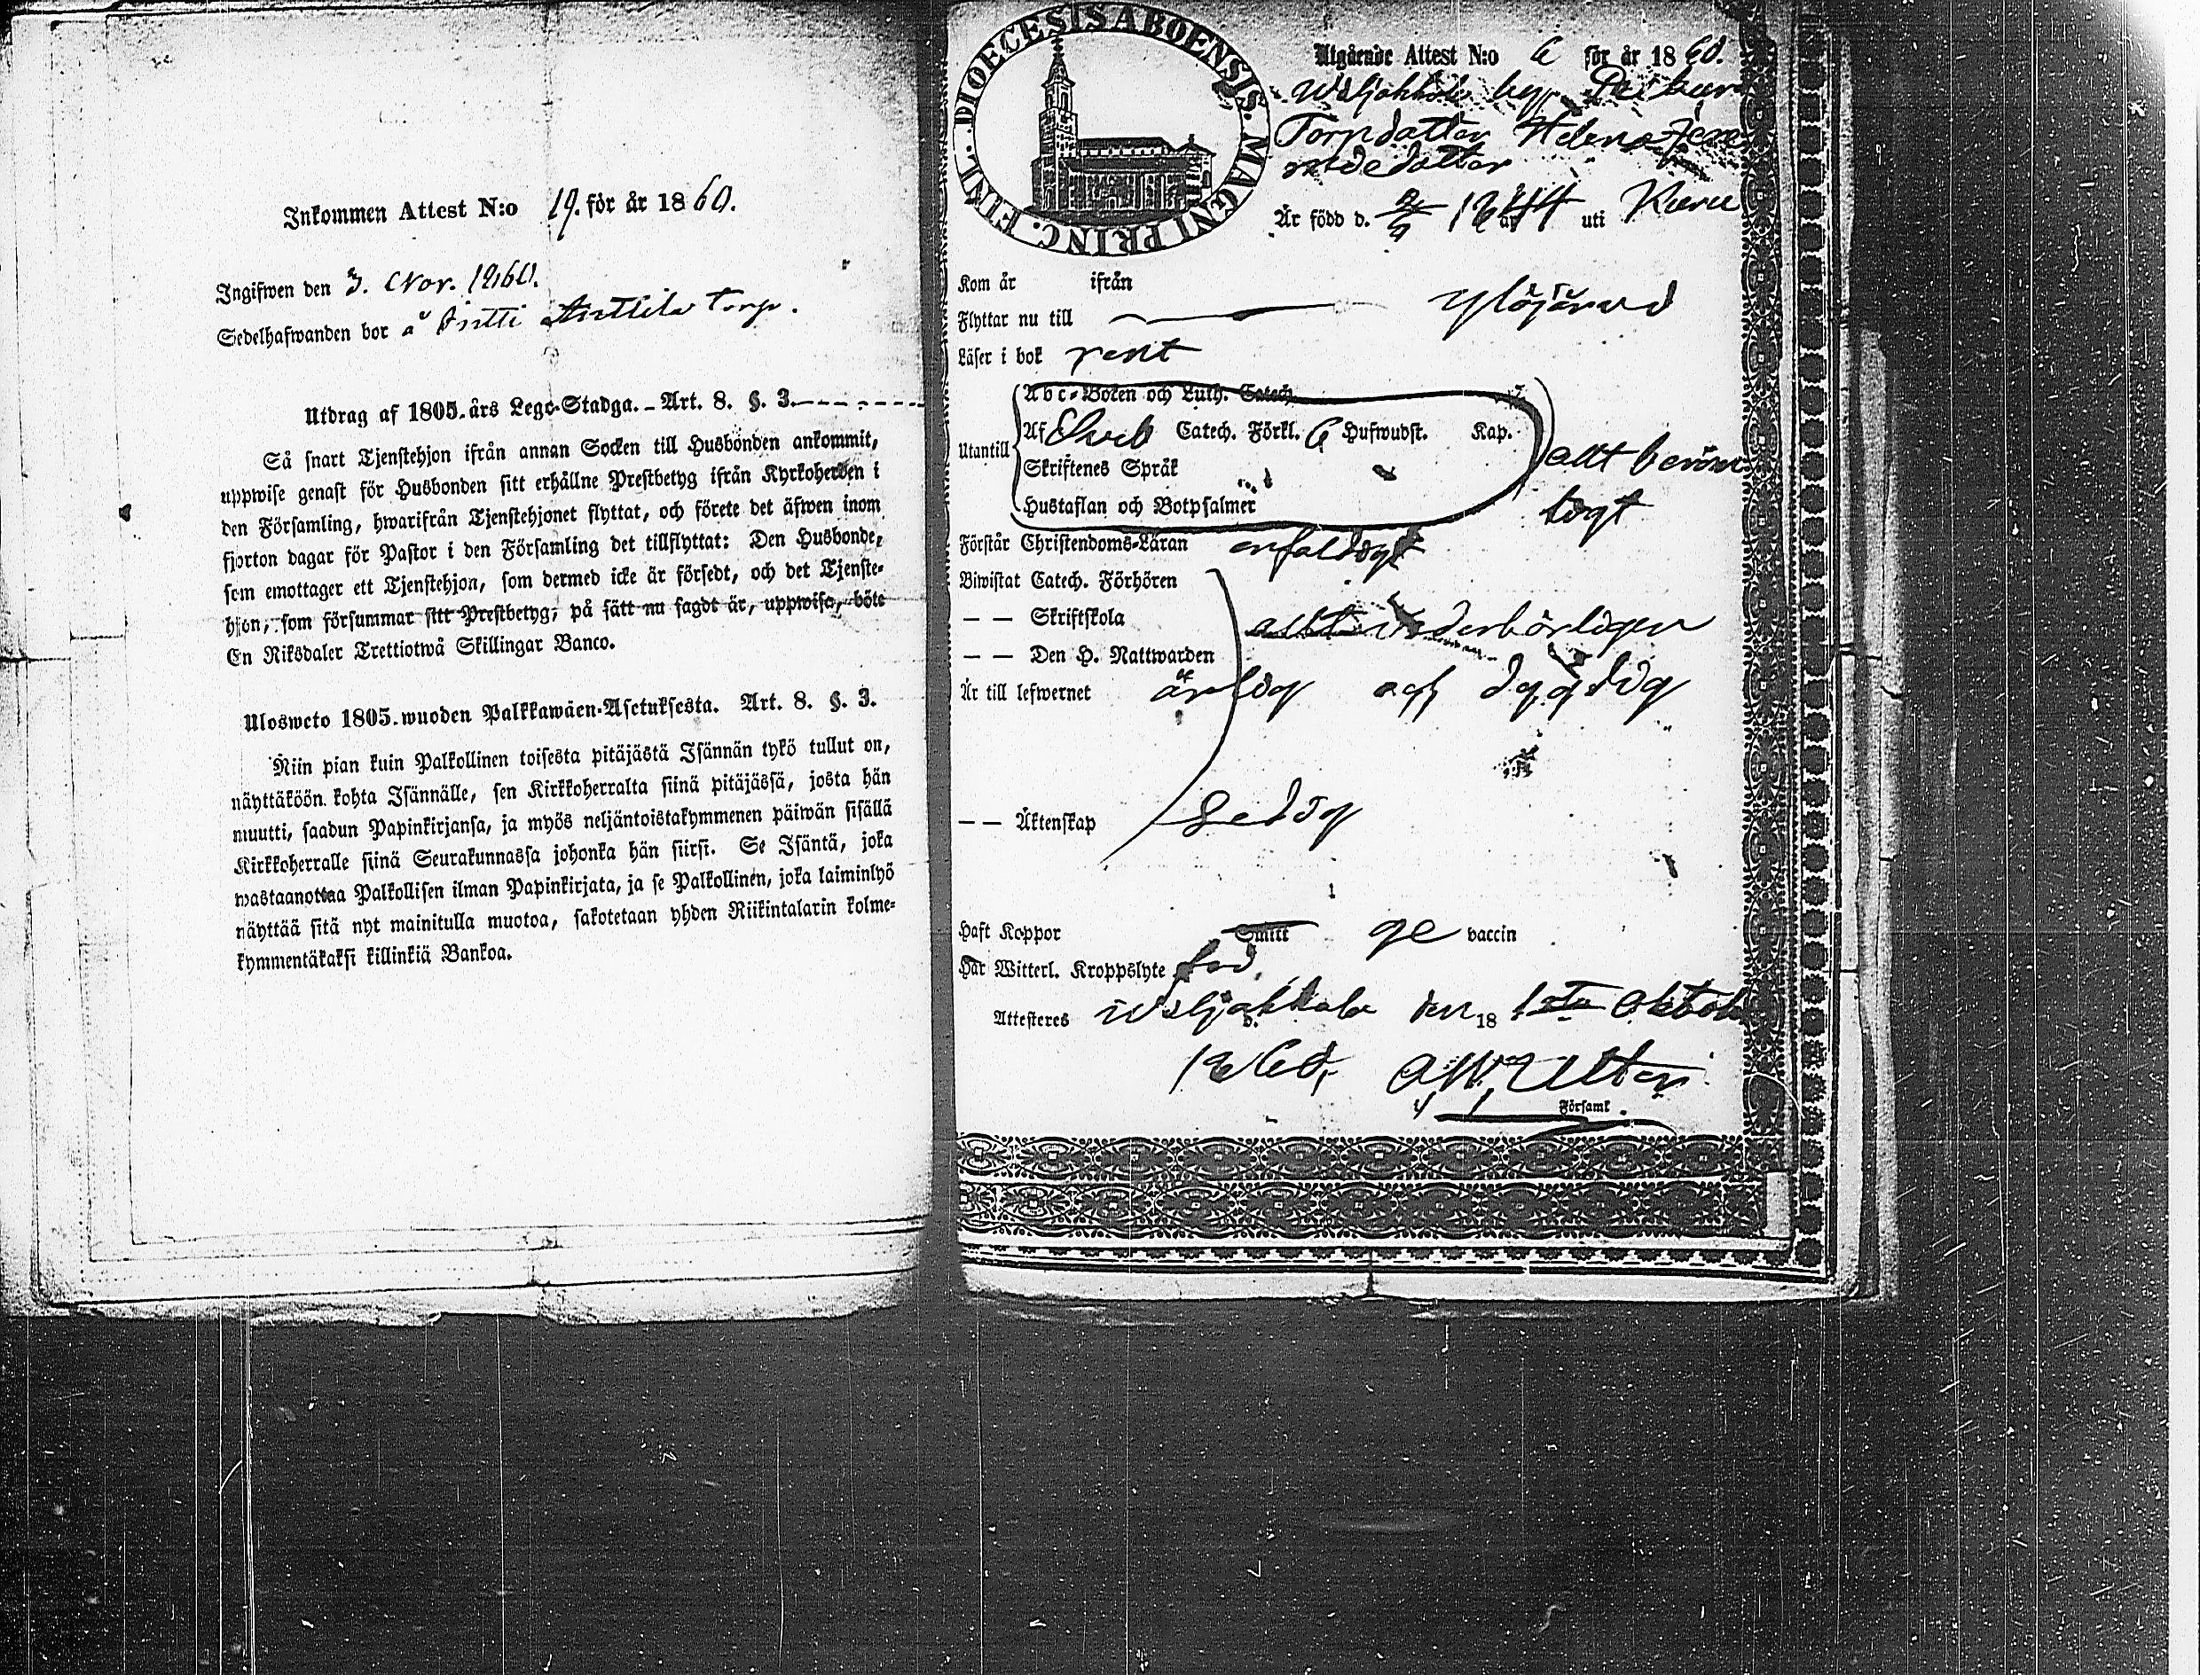 Inkommen Attest N:o 19. för år 1860.
Ingifwen den 3. Nov. 1860.
Sedelhafwanden bor å Anttila Torp.
Utdrag af 1805. års Lego-Stadga. Art. 8. §. 3.
Så snart Tjenstehjon ifrån annan Socken till Husbonden ankommit,
uppwise genast för Husbonden sitt erhållne Prestbetyg ifrån Kyrkoherden i
den Församling, hwarifrån Tjenstehjonet flyttat, och förete det äfwen inom
fjorton dagar för Pastor i den Församling det tillflyttat: Den Husbonde,
som emottager ett Tjenstehjon, som dermed icke är försedt, och det Tjenste-
hjon, som försummar sitt Prestbetyg, på sätt nu sagdt är, uppwisa, böte
En Riksdaler Trettiotwå Skillingar Banco.
Ulosweto 1805. wuoden Palkkawäen-Asetuksesta. Art. 8. §. 3.
Niin pian kuin Palkollinen toisesta pitäjästä Isännän tykö tullut on,
näyttäköön kohta Isännälle, sen Kirkkoherralta siinä pitäjässä, josta hän
muutti, saadun Papinkirjansa, ja myös neljäntoistakymmenen päiwän sisällä
Kirkkoherralle siinä Seurakunnassa johonka hän siirsi. Se Isäntä, joka
wastaanottaa Palkollisen ilman Papinkirjata, ja se Palkollinen, joka laiminlyö
näyttää sitä nyt mainitulla muotoa, sakotetaan yhden Riikintalarin kolme-
kymmentäkaksi killinkiä Bankoa.
DIOECESIS ABOENSIS. MAGNI PRINC. FINL.
Utgående Attest N:o 6 för år 1860.
Wiljakkala by
Torpdotter Helena Jere
miedotter
Är född d. 1844 år uti Kuru
Kom år ifrån
Flyttar nu till Ylöjärvi
Läser i bok rent
Abc-Boken och Luth. Catech.
Utantill Af Sveb Catech. Förkl. 6 Hufwudst. Kap.
Skriftenes Språk allt beröm
Hustaflan och Botpsalmer ligt
Förstår Christendoms-Läran enfaldigt
Biwistat Catech. Förhören
— — Skriftskola allt vederbörligen
— — Den H. Nattwarden
Är till lefwernet ärlig och dygdig
— — Äktenskap Ledig
Haft Koppor Smitt ge vaccin
Har Witterl. Kroppslyte
Attesteres Wiljakkala d. den 18 1sta Oktob
1860,
Församl.